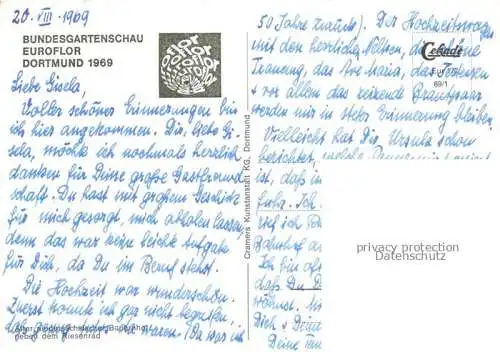 20. VIII. 1969
BUNDESGARTENSCHAU
EUROFLOR
DORTMUND 1969
Liebe Gisela,
Voller schöner Erinnerungen bin
ich hier angekommen. Dir, liebe Gi-
sela, möchte ich nochmals herzlich
danken für Deine große Gastfreund-
schaft. Du hast mit großem Geschick
für mich gesorgt, mich abholen lassen,
denn das war keine leichte Aufgabe
für Dich, da Du im Beruf stehst.
Die Hochzeit war wunderschön.
Zuerst konnte ich gar nicht begreifen,
waren. (Da war ich
neben dem Riesenrad
Cramers Kunstanstalt KG, Dortmund
50 Jahre zurück). Der Hochzeitswagen
mit den herrlichen Nelken, die schöne
Trauung, das Ave Maria, das Essen
+ vor allem das reizende Brautpaar
werden mir in steter Erinnerung bleiben.
Vielleicht hat Dir Ursula schon
berichtet,
ist, daß in
fuhr. Ich
rief ich
Bahnhof
Ich bin
daß Du D
wohnst.
Dich + Deine
Deine
Cekade
69/1
privacy protection
Datenschutz